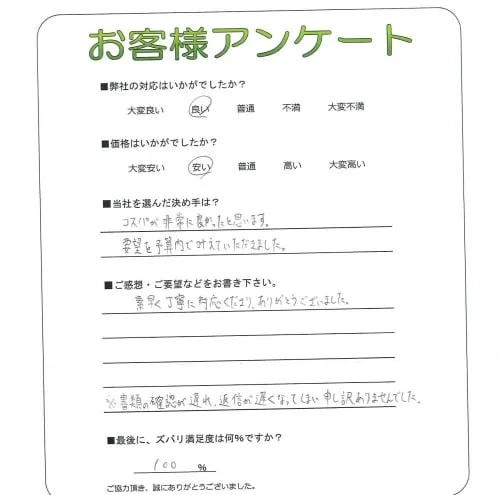 お客様アンケート
■弊社の対応はいかがでしたか？
大変良い 良い 普通 不満 大変不満
■価格はいかがでしたか？
大変安い 安い 普通 高い 大変高い
■当社を選んだ決め手は？
コスパが非常に良かったと思います。
要望を予算内で叶えていただきました。
■ご感想・ご要望などをお書き下さい。
素早く丁寧に対応くださり、ありがとうございました。
※書類の確認が遅れ、返信が遅くなってしまい申し訳ありませんでした。
■最後に、ズバリ満足度は何%ですか？
100 %
ご協力頂き、誠にありがとうございました。